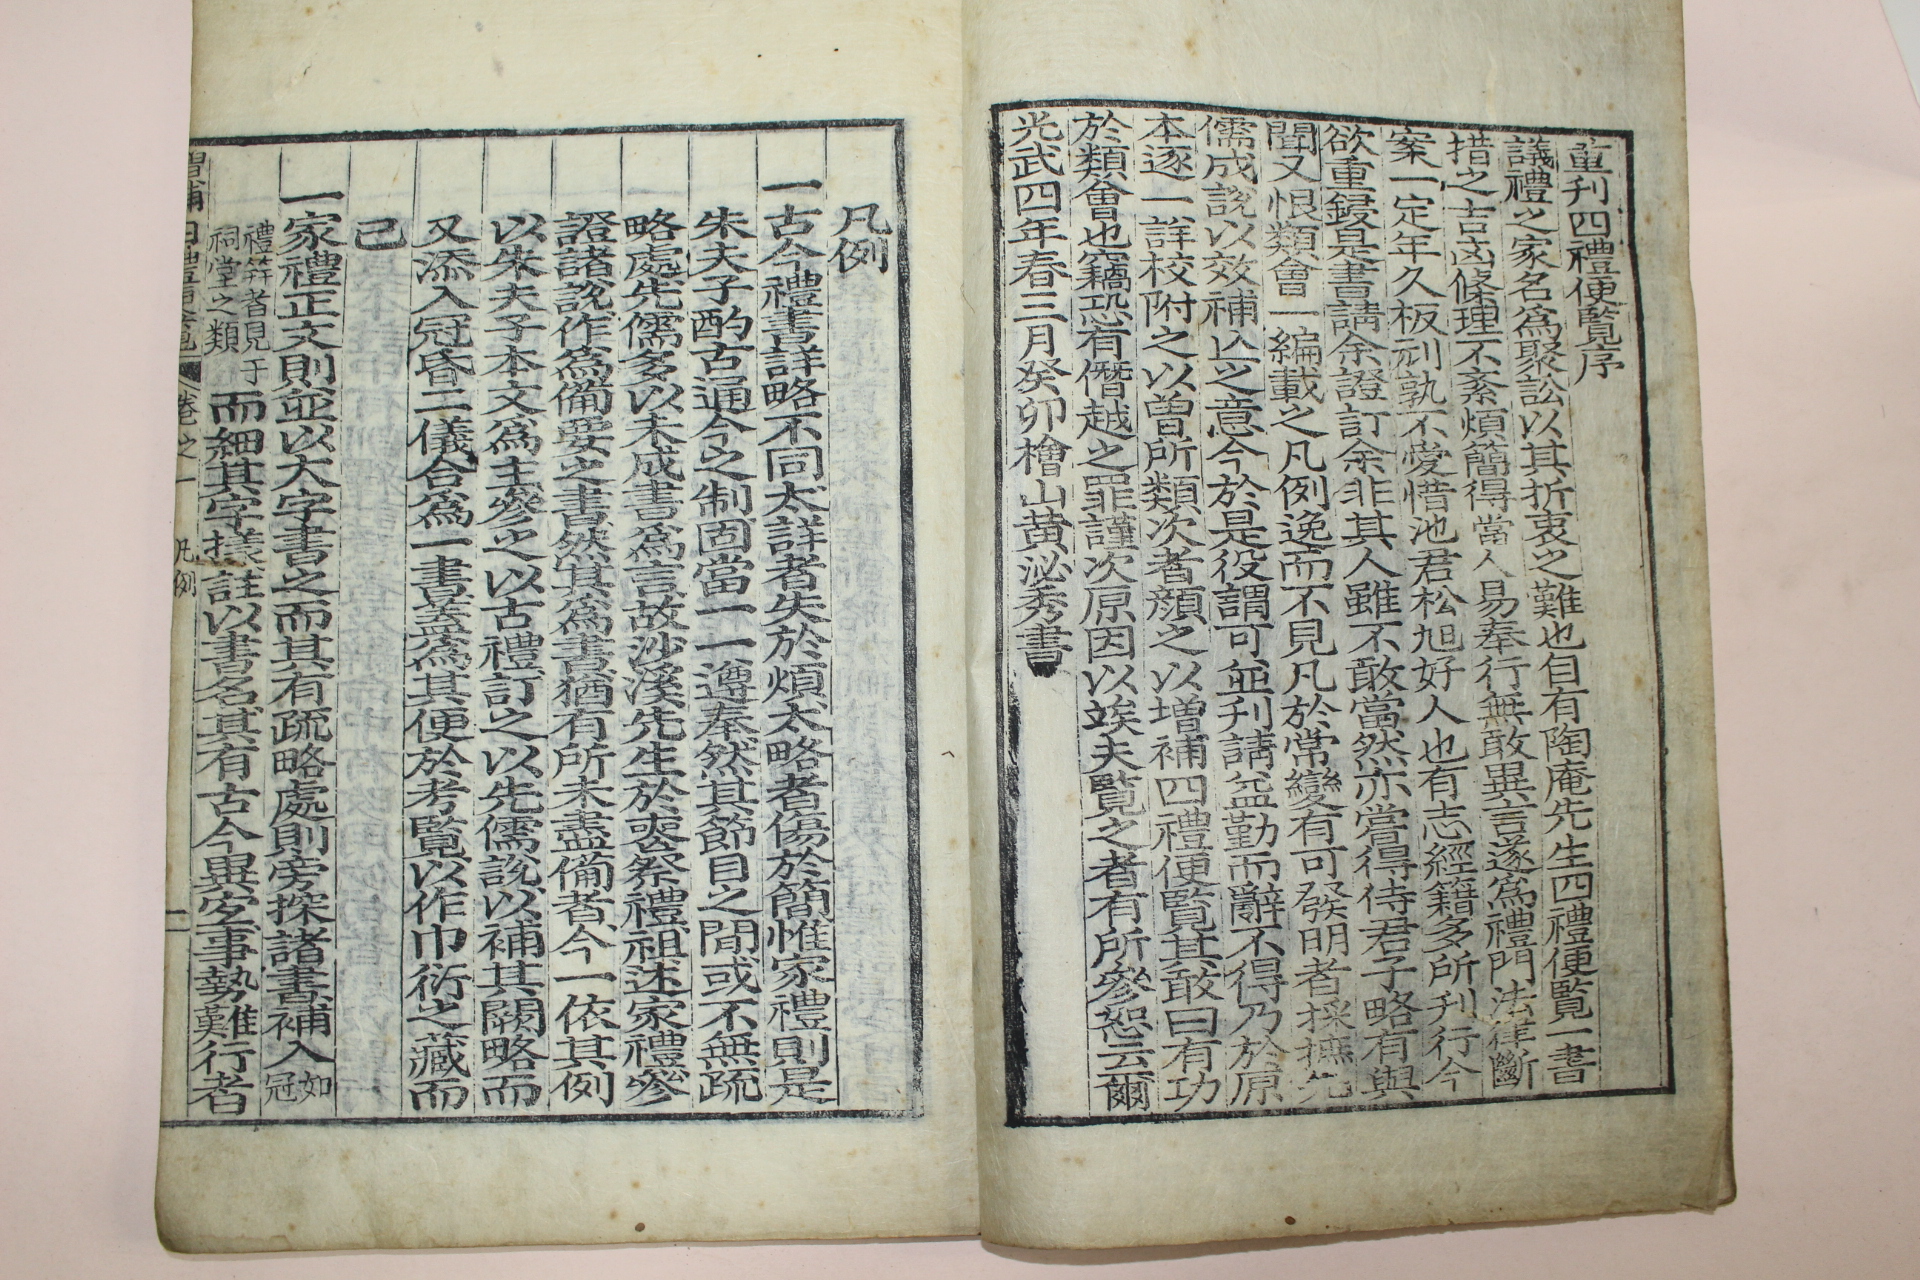 重刊四禮便覽序
議禮之家名爲聚訟以其折衷之難也自有陶庵先生四禮便覽一書
措之吉凶條理不紊煩簡得當人易奉行無敢異言遂爲禮門法律斷
案一定年久板刓孰不愛惜池君松旭好人也有志經籍多所刊行今
欲重鋟是書請余證訂余非其人雖不敢當然亦嘗得侍君子略有與
聞又恨類會一編載之凡例逸而不見凡於常變有可發明者採摭先
儒成說以效補亾之意今於是役謂可並刊請益勤而辭不得乃於原
本逐一詳校附之以曾所類次者顔之以增補四禮便覽其敢曰有功
於類會也竊恐有僭越之罪謹次原因以竢夫覽之者有所參恕云爾
光武四年春三月癸卯檜山黃泌秀書
凡例
一古今禮書詳略不同太詳者失於煩太略者傷於簡惟家禮則是
朱夫子酌古通今之制固當一一遵奉然其節目之間或不無疏
略處先儒多以未成書爲言故沙溪先生於喪祭禮祖述家禮參
證諸說作爲備要之書然其爲書猶有所未盡備者今一依其例
以朱夫子本文爲主參之以古禮訂之以先儒說以補其闕略而
又添入冠昏二儀合爲一書蓋爲其便於考覽以作巾衍之藏而
已
一家禮正文則並以大字書之而其有疏略處則旁採諸書補入如冠
禮笄者見于祠堂之類而細其字樣註以書名其有古今異宜事勢難行者
增補四禮便覽 卷之一 凡例 二